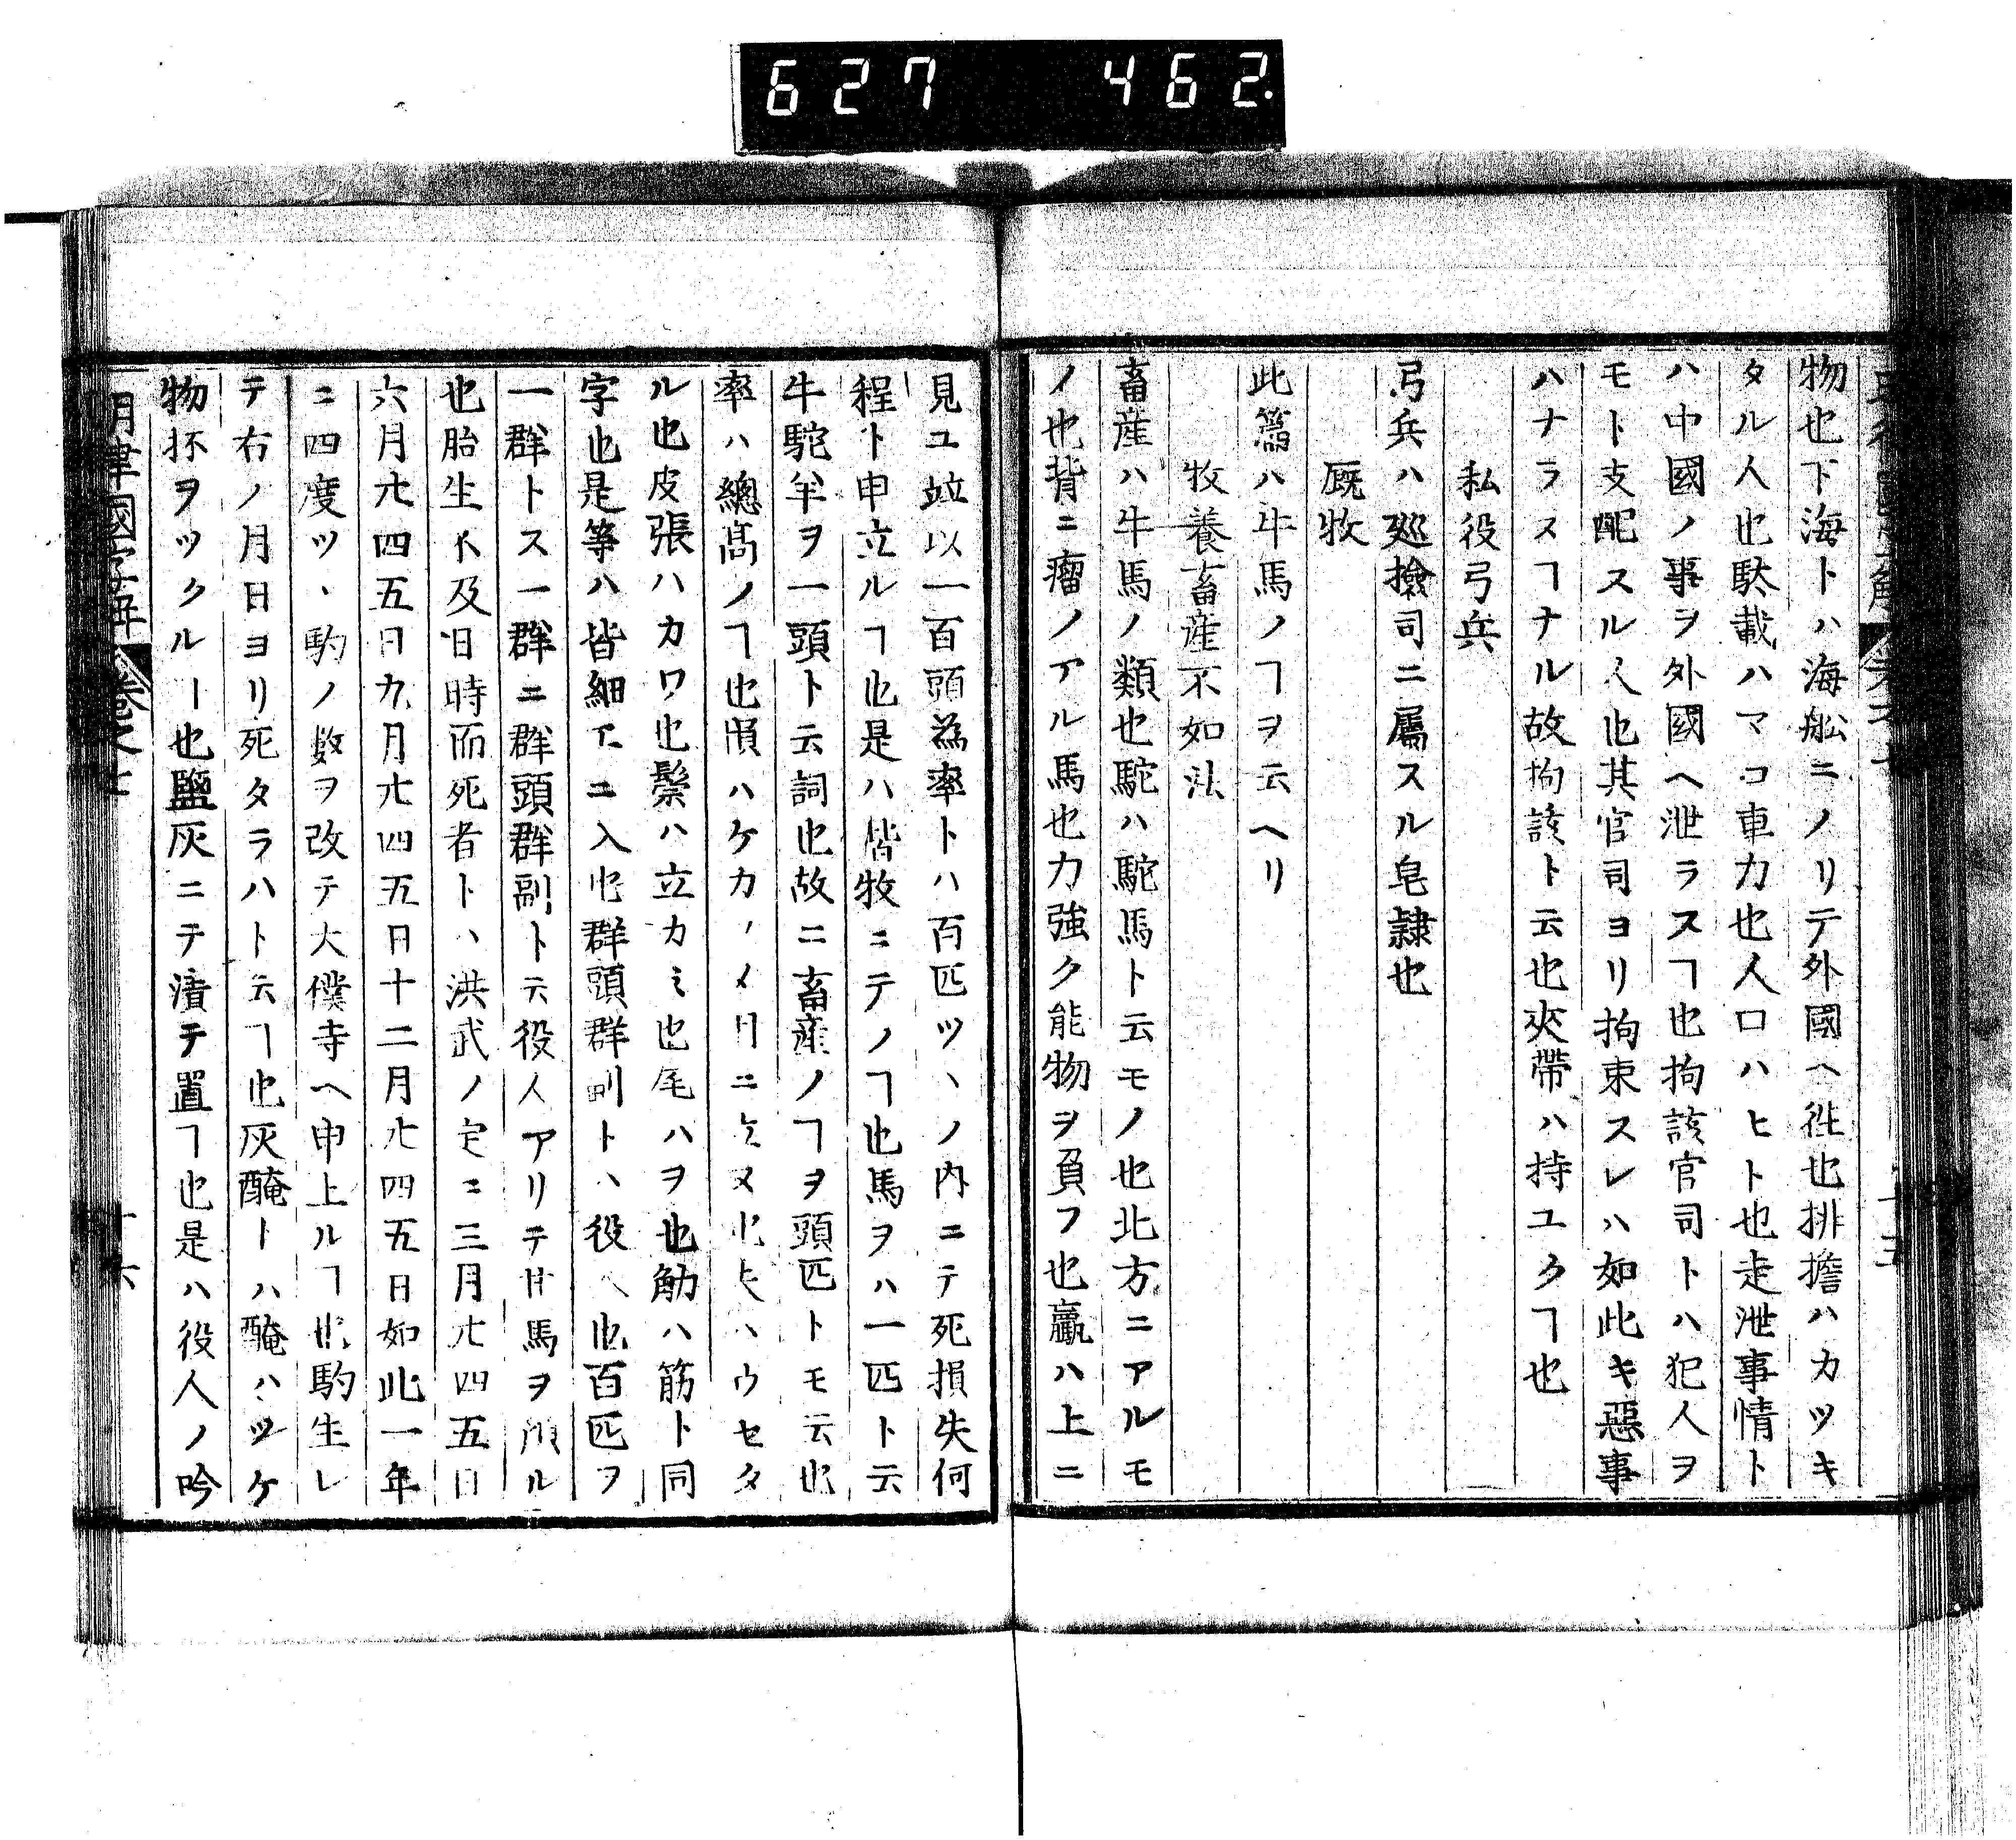 627 462
物也下海トハ海舩ニノリテ外國ヘ徃也排擔ハカツキ
タル人也駄載ハマコ車力也人口ハヒト也走泄事情ト
ハ中國ノ事ヲ外國ヘ泄ラスヿ也拘該官司トハ犯人ヲ
モト支配スル人也其官司ヨリ拘束スレハ如此キ惡事
ハナラスヿナル故拘該ト云也夾帶ハ持ユクヿ也
私役弓兵
弓兵ハ廵撿司ニ屬スル皂隷也
厩牧
此篇ハ牛馬ノヿヲ云ヘリ
牧養畜産不如法
畜産ハ牛馬ノ類也駝ハ駝馬ト云モノ也北方ニアルモ
ノ也背ニ瘤ノアル馬也力強ク能物ヲ負フ也驘ハ上ニ
見ユ竝以一百頭為率トハ百匹ツヽノ内ニテ死損失何
程ト申立ルヿ也是ハ皆牧ニテノヿ也馬ヲハ一匹ト云
牛駝羊ヲ一頭ト云詞也故ニ畜産ノヿヲ頭匹トモ云也
率ハ總髙ノヿ也
ル也皮張ハカワ也鬃ハ立カミ也尾ハヲ也觔ハ筋ト同
字也是等ハ皆細工ニ入也群頭群副トハ役人也百匹ヲ
一群トス一群ニ群頭群副ト云役人アリテ廿馬ヲ領ル
也胎生不及日時而死者トハ洪武ノ定ニ三月廿四五日
六月廿四五日九月廿四五日十二月廿四五日如此一年
ニ四度ツヽ駒ノ数ヲ改テ大僕寺ヘ申上ルヿ也駒生レ
テ右ノ月日ヨリ死タラハト云ヿ也灰醃トハ醃ハツケ
物抔ヲツクルー也鹽灰ニテ漬テ置ヿ也是ハ役人ノ吟
明律國字解 卷之七 十六